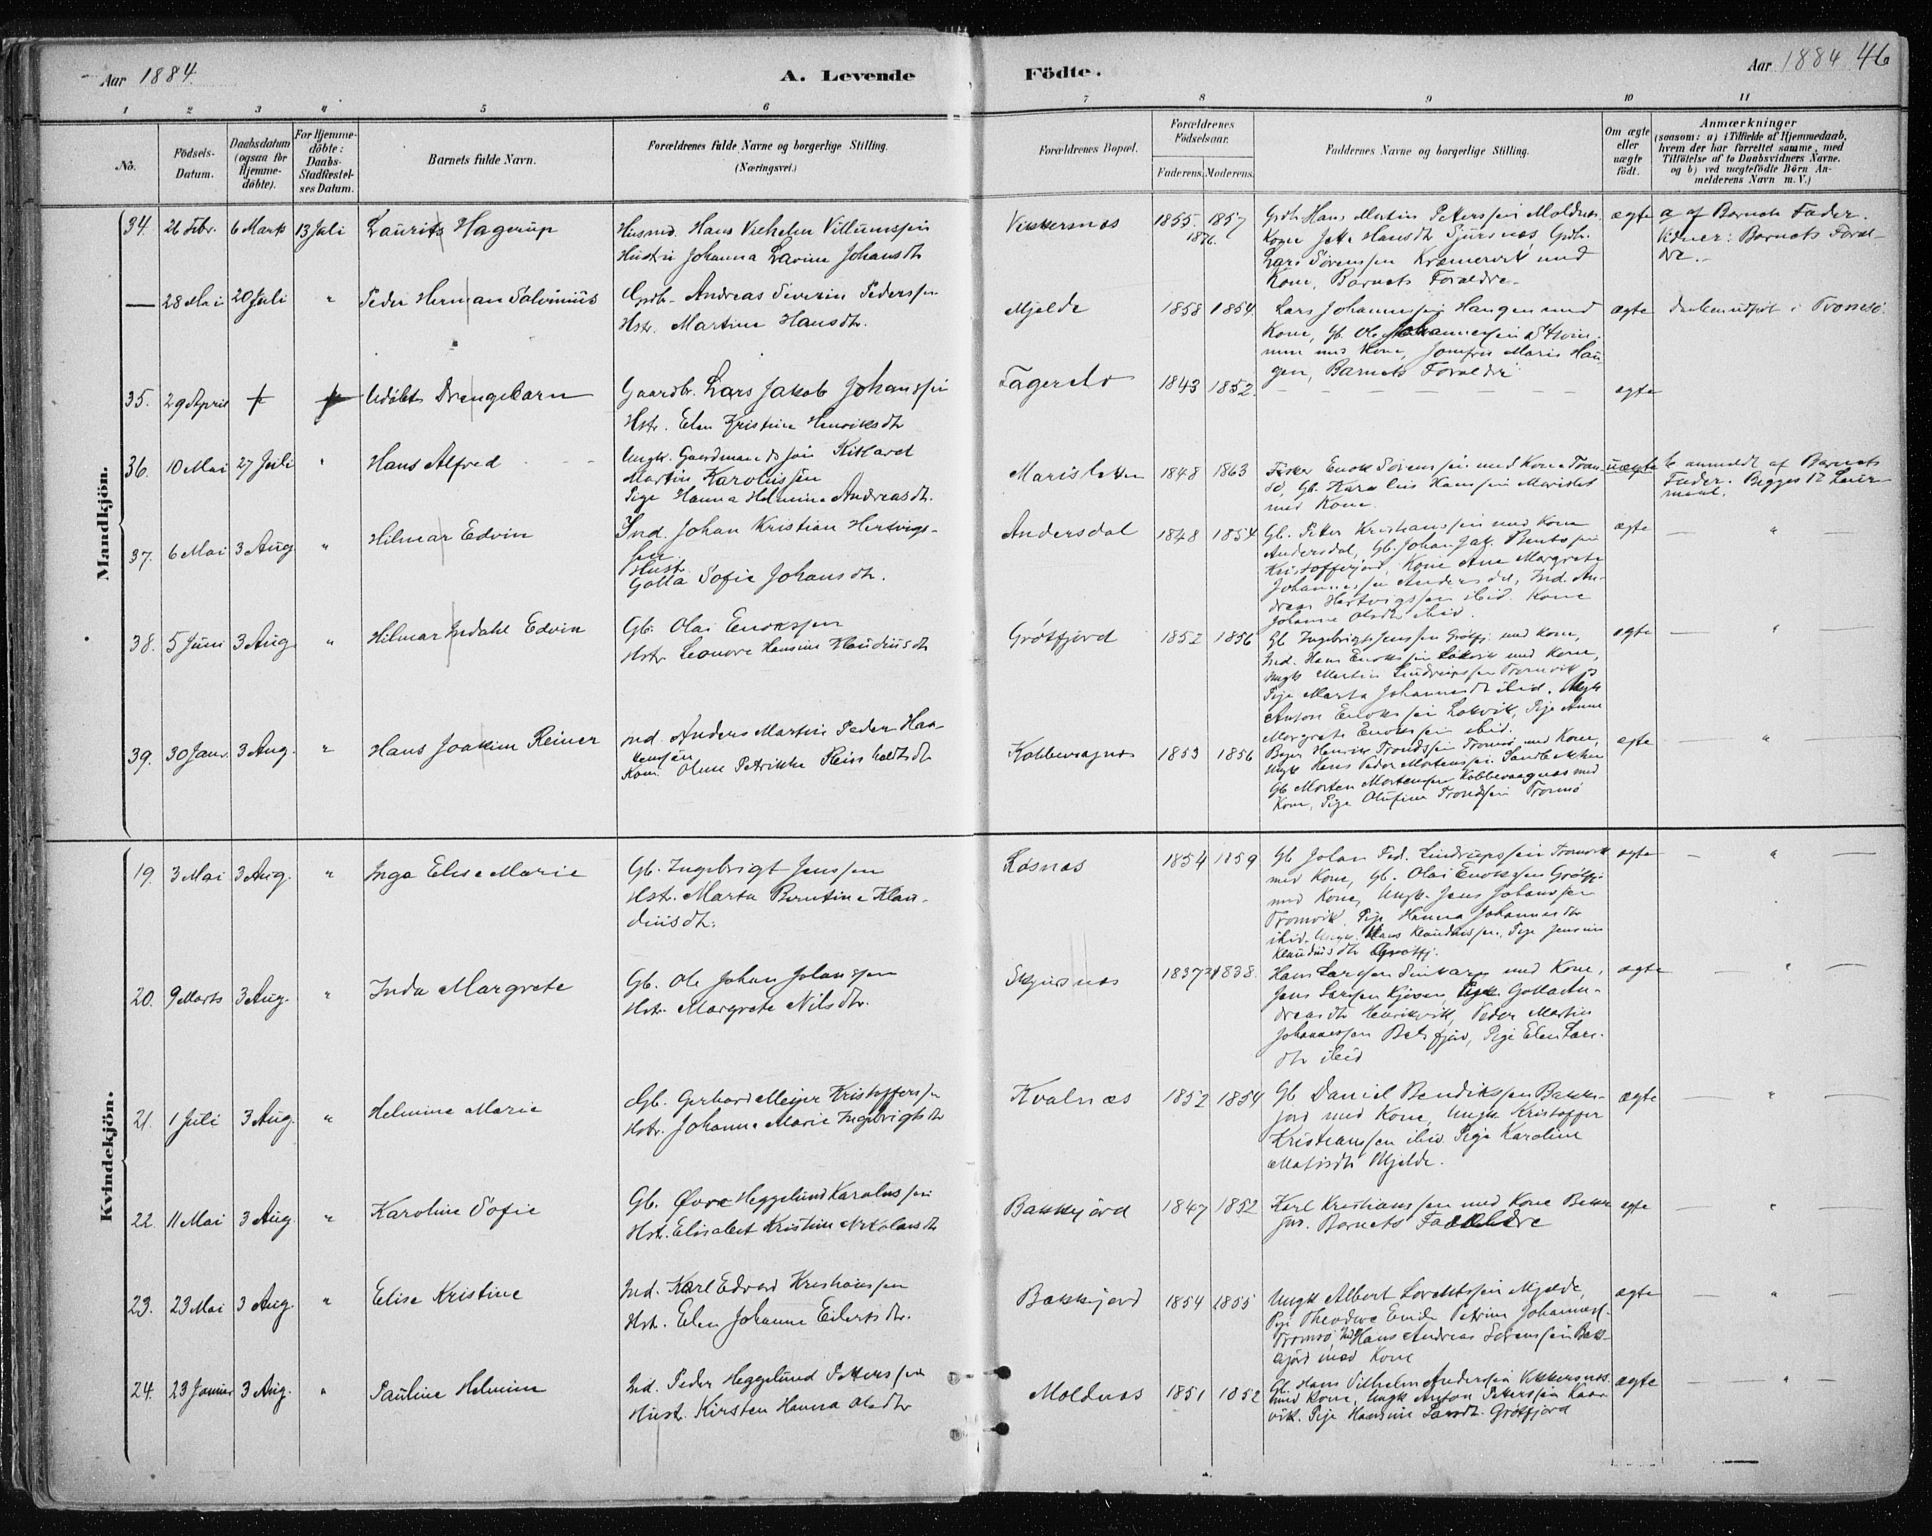 Aar 1884.
A. Levende
Födte.
Aar 1884 46
1 2 3 4 5 6 7 8 9 10 11
No.
Födsels-Datum.
Daabsdatum (ogsaa for Hjemme-döbte).
For Hjemme-döbte: Daabs-Stadfæstel-ses Datum.
Barnets fulde Navn.
Forældrenes fulde Navne og borgerlige Stilling. (Næringsvei.)
Forældrenes Bopæl.
Forældrenes Födselsaar.
Faderens. Moderens.
Faddernes Navne og borgerlige Stilling.
Om ægte eller uægte födt.
Anmærkninger
(saasom: a) i Tilfælde af Hjemmedaab, hvem der har forrettet samme, med Tilföielse af to Daabsvidners Navne, og b) ved uægtefödte Börn An-melderens Navn m. V.)
Mandkjön.
34. 26 Febr. 6 Marts 13 Juli Laurits Hagerup
Husmd. Hans Vilhelm Villumssen
Hustru Johanna Lavine Johansdtr
Vikkersnæs 1855 1857
1876.
Grdb. Hans Martin Peterssen Moldnæs,
Kone Hansdtr Sjursnæs, Grdb.
Lars Sörenssen Kræmervik med
Kone, Barnets Foraldre.
ægte a af Barnets Fader.
Vidner: Barnets Foræl-
dre.
— 28 Mai 20 Juli " Peder Herman Salvinius
Grdb. Andreas Severin Pederssen
Hstr. Martine Hansdtr.
Mjelde 1858 1854
Lars Johannessen Haugen med
Kone, Gb. Ole Johannessen
med Kone, Jomfru Maria Hau-
gen, Barnets Foraldre
ægte i Tromsö.
35. 29 April Udöbt Drengebarn
Gaardbr. Lars Jakob Johanssen
Hstr. Elen Kristine Henriksdtr
Fagerelv 1843 1852.
– – – – – – – –
ægte
36. 10 Mai 27 Juli " Hans Alfred
Ungk. Gaardmandssön
Martin Karolussen
Pige Hanna Helmine Andreasdtr.
Marisletten 1848 1863
Fisker Enok Sörenssen med Kone Trom-
sö, Gb. Karolus Hanssen Marislet
med Kone
uægte b anmeldt af Barnets
Fader. Begges 1ste Leier-
maal.
37. 6 Mai 3 Aug " Hilmar Edvin
Ind. Johan Kristian Hertvigs-
sen
Hustr.
Golla Sofie Johansdtr.
Andersdal 1848 1854
Gb. Peter Kristianssen med Kone
Andersdal, Gb. Johan Jak. Bentssen
Kristofferjord, Kone Ane Margrete
Johannessen Andersdal, Ind. An-
dreas Hertvigssen ibid. Kone
Johanna Olsdtr ibid.
ægte — " —
38. 5 Juni 3 Aug " Hilmar Indahl Edvin
Gb. Olai Enokssen
Hstr Leonore Hansine Klaudiusdtr
Grötfjord 1852 1856
Gb Ingebrigt Jenssen Grötfj. med Kone,
Ind. Hans Enokssen Lökvik med Kone,
Ungk Martin Lindrupssen Tromvik,
Pige Marta Johannesdtr ibid. Ungk
Anton Enokssen Lökvik, Pige Anne
Margrete Enokssen ibid.
ægte — " —
39. 30 Janr. 3 Aug. " Hans Joakim Reiner
Ind. Anders Martin Peder Haa-
kenssen
Kone Oline Petrikke Reinholtdtr
Kobbevaagnes 1853 1856
Henrik Trondssen Tromsö med Kone,
Ungk Hans Peder Mortenssen Sandbakken
Gb Morten Mortenssen Kobbevaagnæs med
Kone, Pige Olufine Trondssen Tromsö
ægte — " —
Kvindekjön.
19. 3 Mai 3 Aug. " Inga Elise Marie
Gb. Ingebrigt Jenssen
Hstr. Marta Berntine Klau-
diusdtr.
Løsnæs 1854 1859
Gb Johan Ped. Lindrupssen Tromvik
med Kone, Gb. Olai Enokssen Grötfj.
med Kone, Ungk. Jens Johanssen
Tromvik, Pige Hanna Johannesdtr
ibid. Ungk. Hans Klaudiussen, Pige Jensine
Klaudiusdtr Grötfj.
ægte — " —
20. 9 Marts 3 Aug. " Inda Margrete
Gb. Ole Johan Johanssen
Hstr. Margrete Nilsdtr.
Skjursnæs 1837 1838.
Hans Larssen med Kone,
Jens Larssen Kjösen, Pige Golla An-
dreasdtr Henrikvik, Peder Martin
Johannessen Balsfjord, Pige Elen Lars-
dtr ibid
ægte " —
21. 1 Juli 3 Aug. " Helmine Marie
Gb. Gerhard Meijer Kristofferssen
Hstr. Johanna Marie Ingebrigtsdtr
Kvalnæs 1852 1854
Gb Daniel Bendikssen Bakke-
jord med Kone, Ungk Kristoffer
Kristianssen ibid. Pige Karoline
Matisdtr Mjelde.
ægte — " —
22. 11 Mai 3 Aug. " Karoline Sofie
Gb. Övre Heggelund Karolussen
Hstr. Elisabet Kristine Nikolausdtr
Bakkejord 1847 1852
Karl Kristianssen med Kone Bakke-
jord. Barnets Forældre
ægte — " —
23. 23 Mai 3 Aug. " Elise Kristine
Ind. Karl Edvard Kristianssen
Hstr. Elen Johanna Eilertsdtr.
Bakkejord 1854 1855
Ungk Albert Lorentssen Mjelde,
Pige Theodore Petrine Johannes
Tromsö, Ind. Hans Andreas Sörenssen Bak-
kejord med Kone
ægte — " —
24. 23 Januar 3 Aug. " Pauline Helmine
Ind. Peder Heggelund Peterssen
Hustr. Kirsten Hanna Olsdtr
Moldnæs 1851 1852
Gb. Hans Vilhelm Anderssen Vikkersnæs
med Kone, Ungk Anton Peterssen Kaar-
vik. Pige Hansine Larsdtr. Grötfjord
ægte — " —